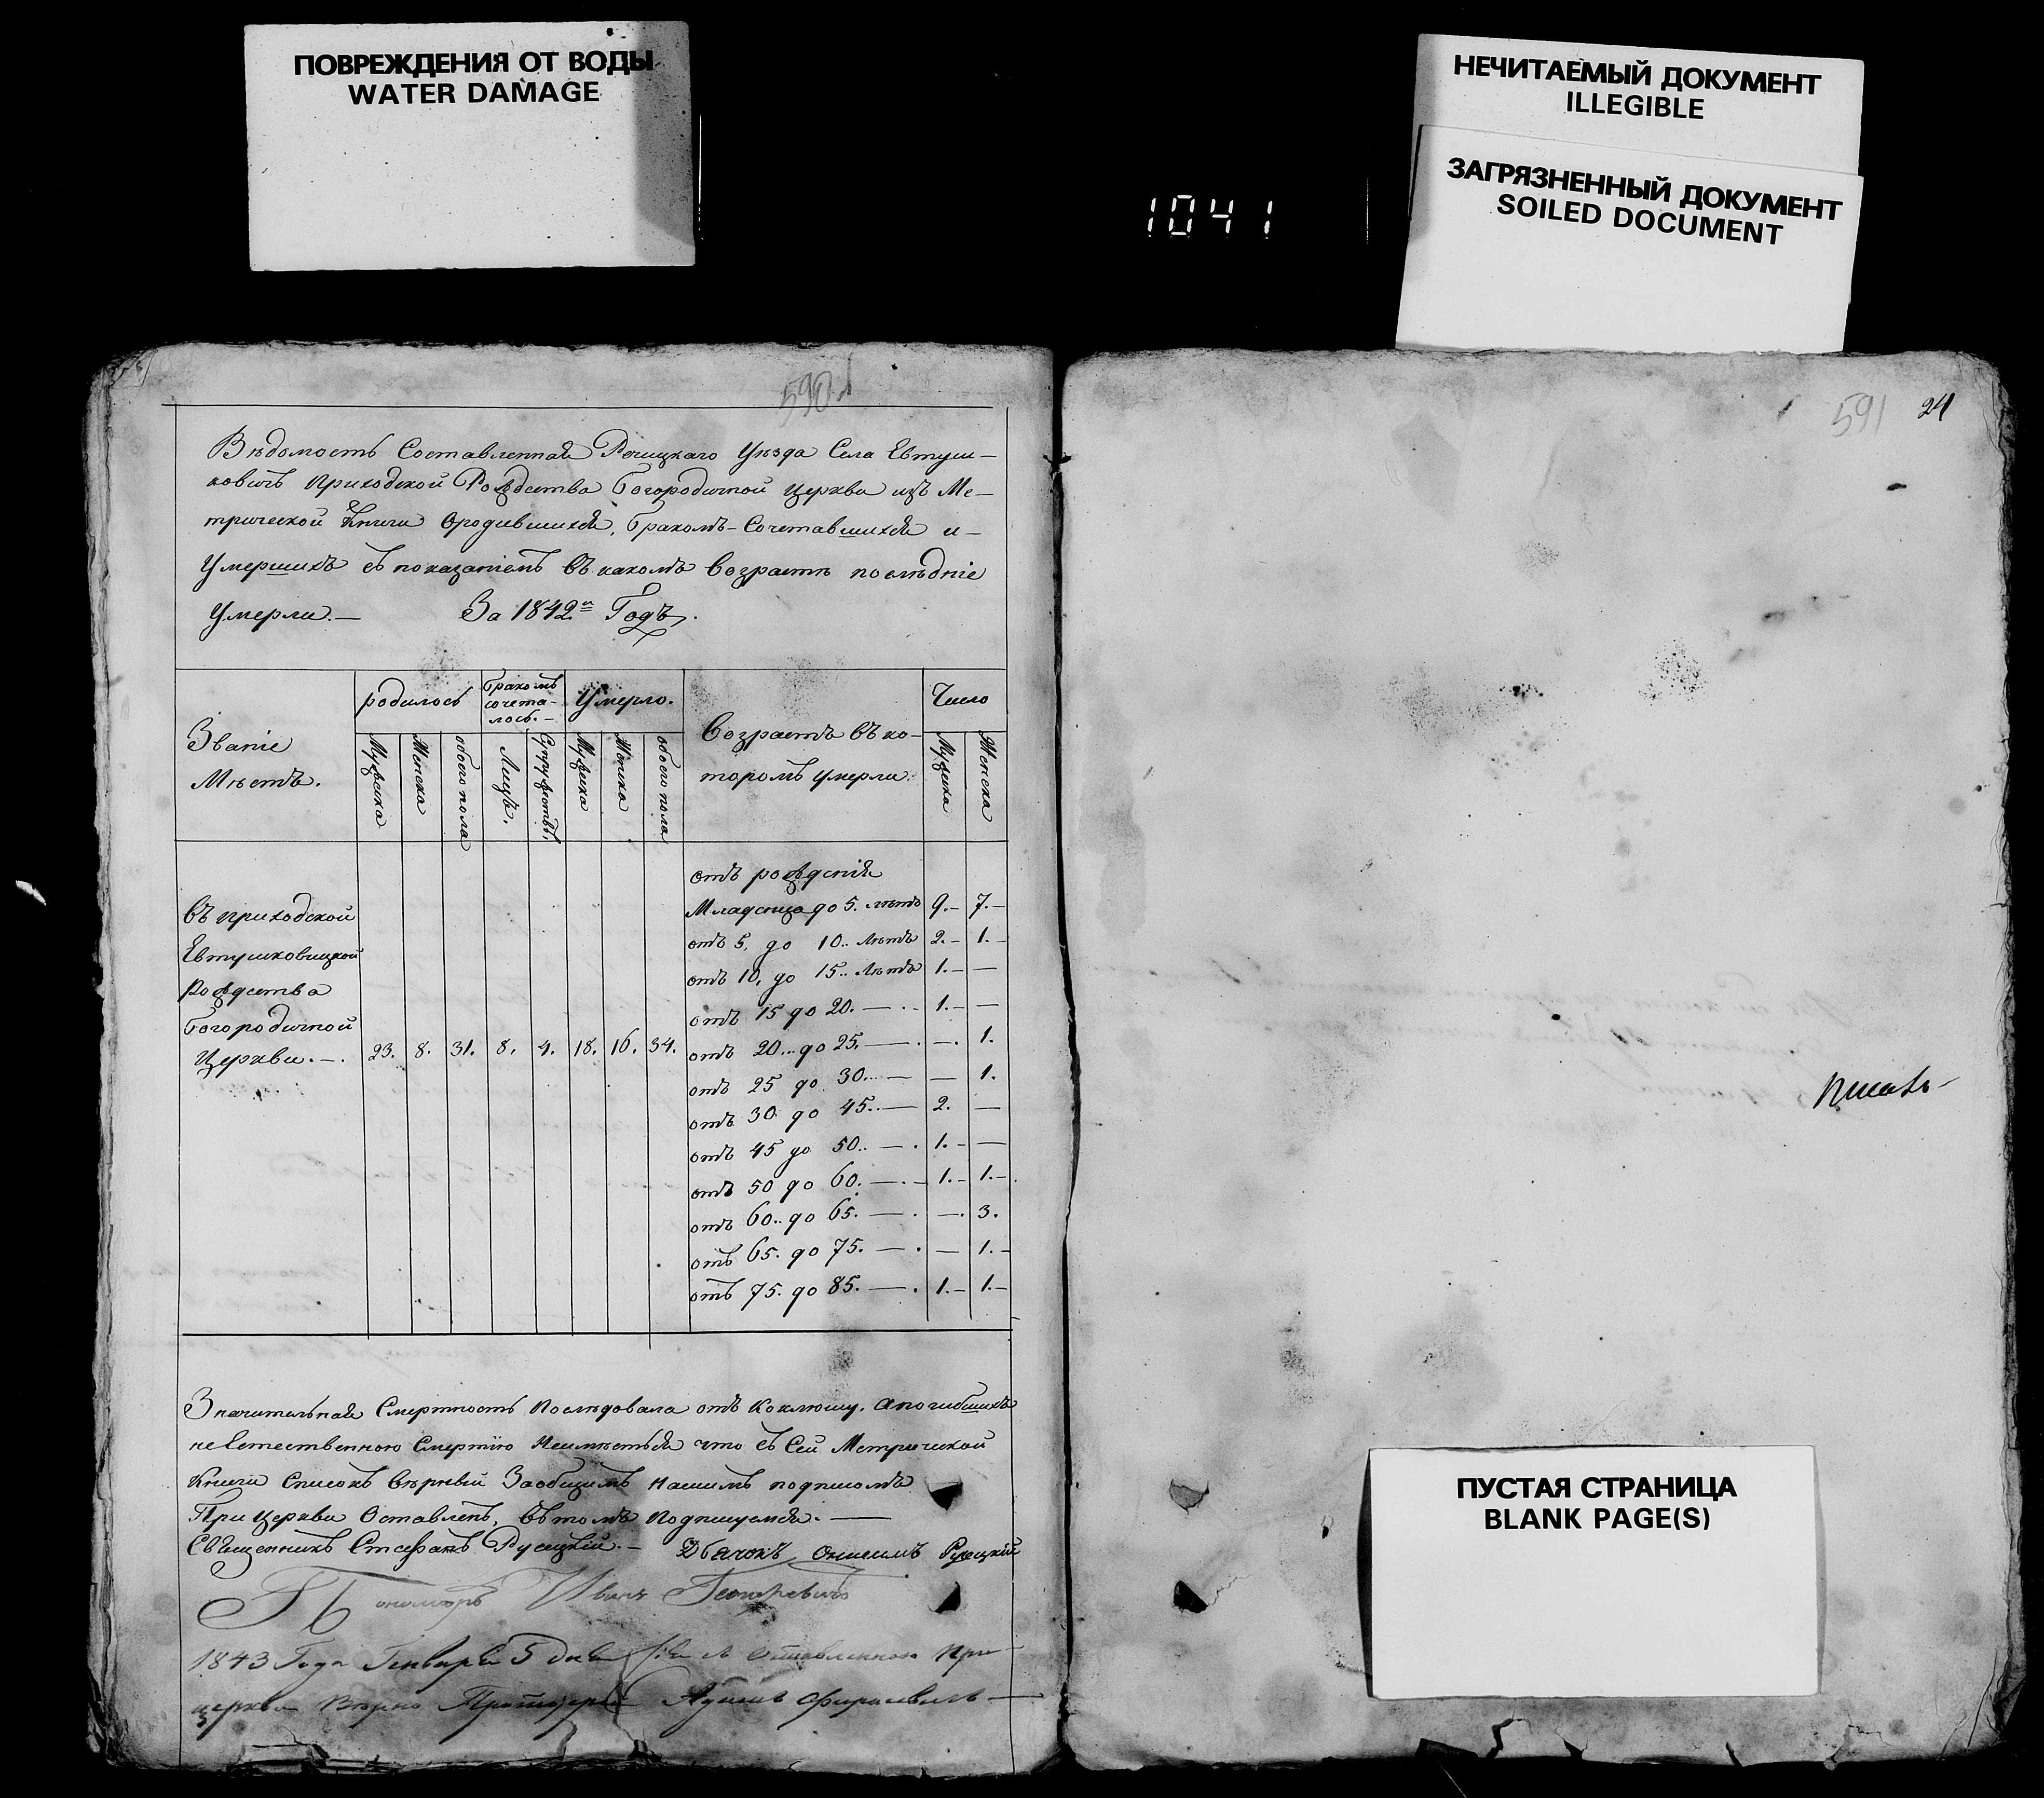 ПОВРЕЖДЕНИЯ ОТ ВОДЫ
WATER DAMAGE
НЕЧИТАЕМЫЙ ДОКУМЕНТ
ILLEGIBLE
ЗАГРЯЗНЕННЫЙ ДОКУМЕНТ
SOILED DOCUMENT
1041
590
Вѣдомость Составленная Речицкаго Уѣзда Села Евтуш-
ковичъ Приходской Рождества Богородичной Церкви изъ Ме-
трической Книги Ородившихся, Бракомъ-Сочетавшихся и-
Умершихъ съ показаніемъ въ какомъ возрастѣ послѣдніе
Умерли.— За 1842й Годъ.
Званіе Мѣстъ. родилось Бракомъ сочета-лось.- Умерло. Возрастъ въ ко-торомъ умерли. Число
Мужска Женска обоего пола Лицъ. Супружествъ. Мужска Женска обоего пола Мужска Женска
отъ рожденія
въ приходской Младенца до 5. лѣтъ 9.- 7.-
Евтушковицкой отъ 5. до 10.. Лѣтъ 2.- 1.-
Рождества отъ 10. до 15.. Лѣтъ 1.- —
Богородичной отъ 15 до 20. — 1.- —
Церкви.—. 23. 8. 31. 8. 4. 18. 16. 34. отъ 20... до 25. — . —. 1.
отъ 25 до 30... — — 1.
отъ 30. до 45.. — 2. —
отъ 45 до 50.. — . 1.- —
отъ 50 до 60. — . 1.- 1.-
отъ 60.. до 65. — . —. 3.
отъ 65. до 75. — . — 1.-
отъ 75. до 85. — . 1.- 1.-
Значительная Смертность Послѣдовала отъ Коклюшу, Апогибшихъ
не Естественною Смертію Неимѣтся что съ Сей Метрической
Книги Списокъ вѣрный Заобщимъ Нашимъ подписомъ
При Церкви Оставленъ, въ томъ Подпишуемся. —
Священникъ Стефанъ Русецкій.— Дьячокъ Онисимъ Русецкій
Пономарь Иванъ
1843 Года Генваря 5 дня съ оставленною При
церкви Вѣрно
591 24
ПУСТАЯ СТРАНИЦА
BLANK PAGE(S)